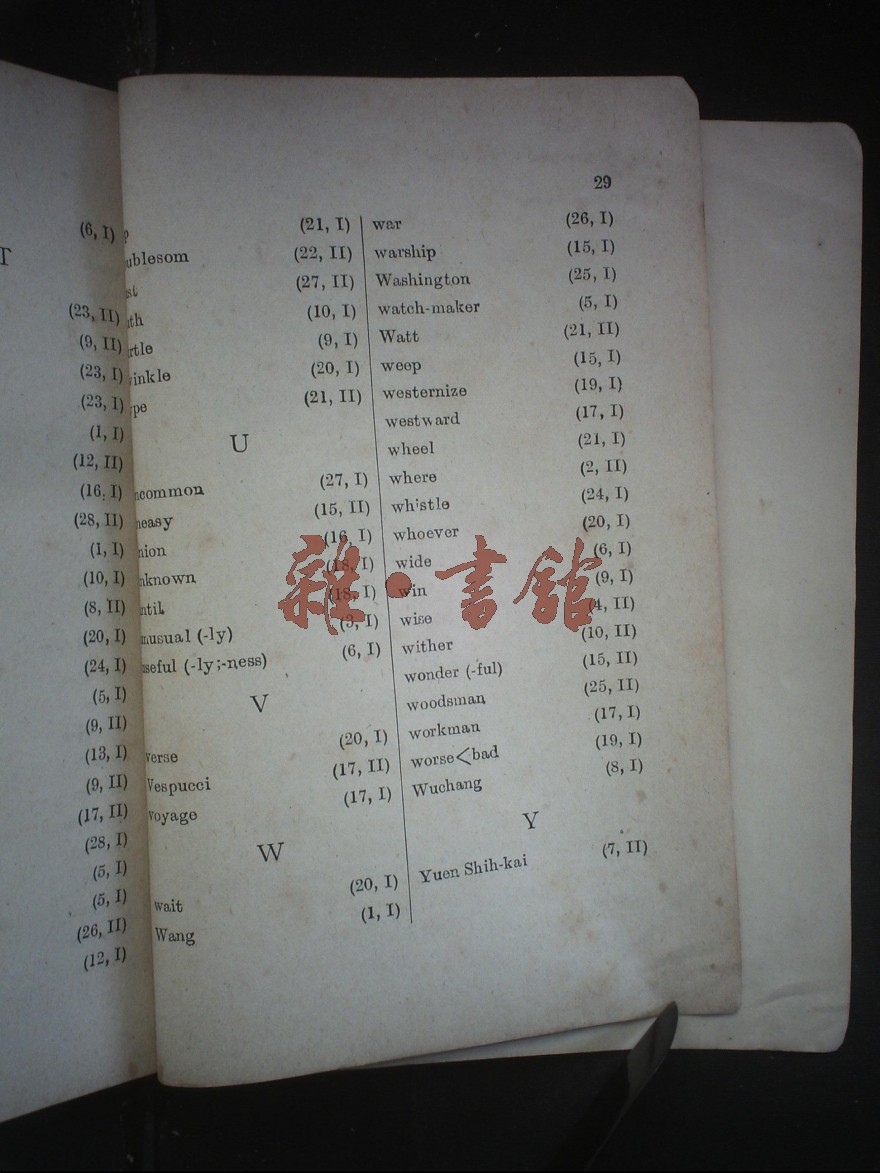 (6, I)
T
(23, II)
(9, II)
(23, I)
(23, I)
(1, I)
(12, II)
(16, I)
(28, II)
(1, I)
(10, I)
(8, II)
(20, I)
(24, I)
(5, I)
(9, II)
(13, I)
(9, II)
(17, II)
(28, I)
(5, I)
(5, I)
(26, II)
(12, I)
29
p (21, I)
ublesom (22, II)
st (27, II)
th (10, I)
rtle (9, I)
winkle (20, I)
ype (21, II)
U
ncommon (27, I)
neasy (15, II)
nion (16, I)
nknown (18, I)
ntil (18, I)
nusual (-ly) (3, I)
seful (-ly;-ness) (6, I)
V
verse (20, I)
Vespucci (17, II)
voyage (17, I)
W
wait (20, I)
Wang (1, I)
war (26, I)
warship (15, I)
Washington (25, I)
watch-maker (5, I)
Watt (21, II)
weep (15, I)
westernize (19, I)
westward (17, I)
wheel (21, I)
where (2, II)
whistle (24, I)
whoever (20, I)
wide (6, I)
win (9, I)
wise (4, II)
wither (10, II)
wonder (-ful) (15, II)
woodsman (25, II)
workman (17, I)
worse<bad (19, I)
Wuchang (8, I)
Y
Yuen Shih-kai (7, II)
雜·書館